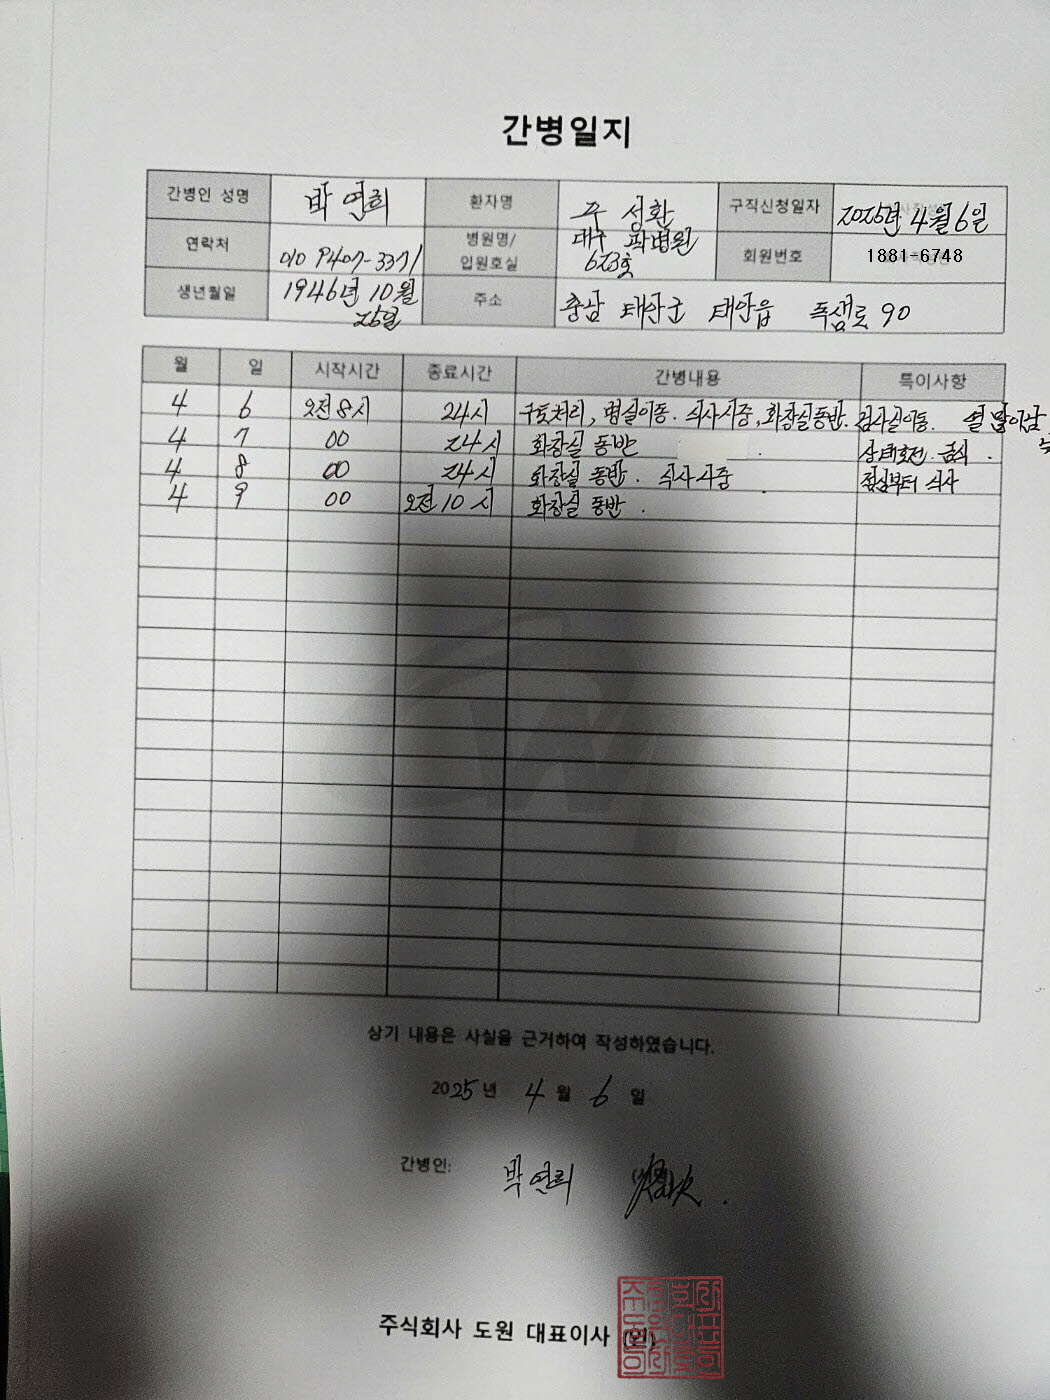 간병일지
간병인 성명 박연희 환자명 주성환 구직신청일자 2025년 4월 6일
연락처 010 9407-3371 병원명/입원호실 대구 파병원 623호 회원번호 1881-6748
생년월일 1946년 10월 25일 주소 충남 태안군 태안읍 독샘로 90
월 일 시작시간 종료시간 간병내용 특이사항
4 6 오전8시 24시 구토처리, 병실이동. 식사시중, 화장실동반. 검사실이동. 열 많이남
4 7 00 24시 화장실 동반 . 상태호전. 금식.
4 8 00 24시 화장실 동반. 식사시중 . 점심부터 식사
4 9 00 오전10시 화장실 동반.
상기 내용은 사실을 근거하여 작성하였습니다.
2025년 4월 6일
간병인: 박연희
주식회사 도원 대표이사 (인)